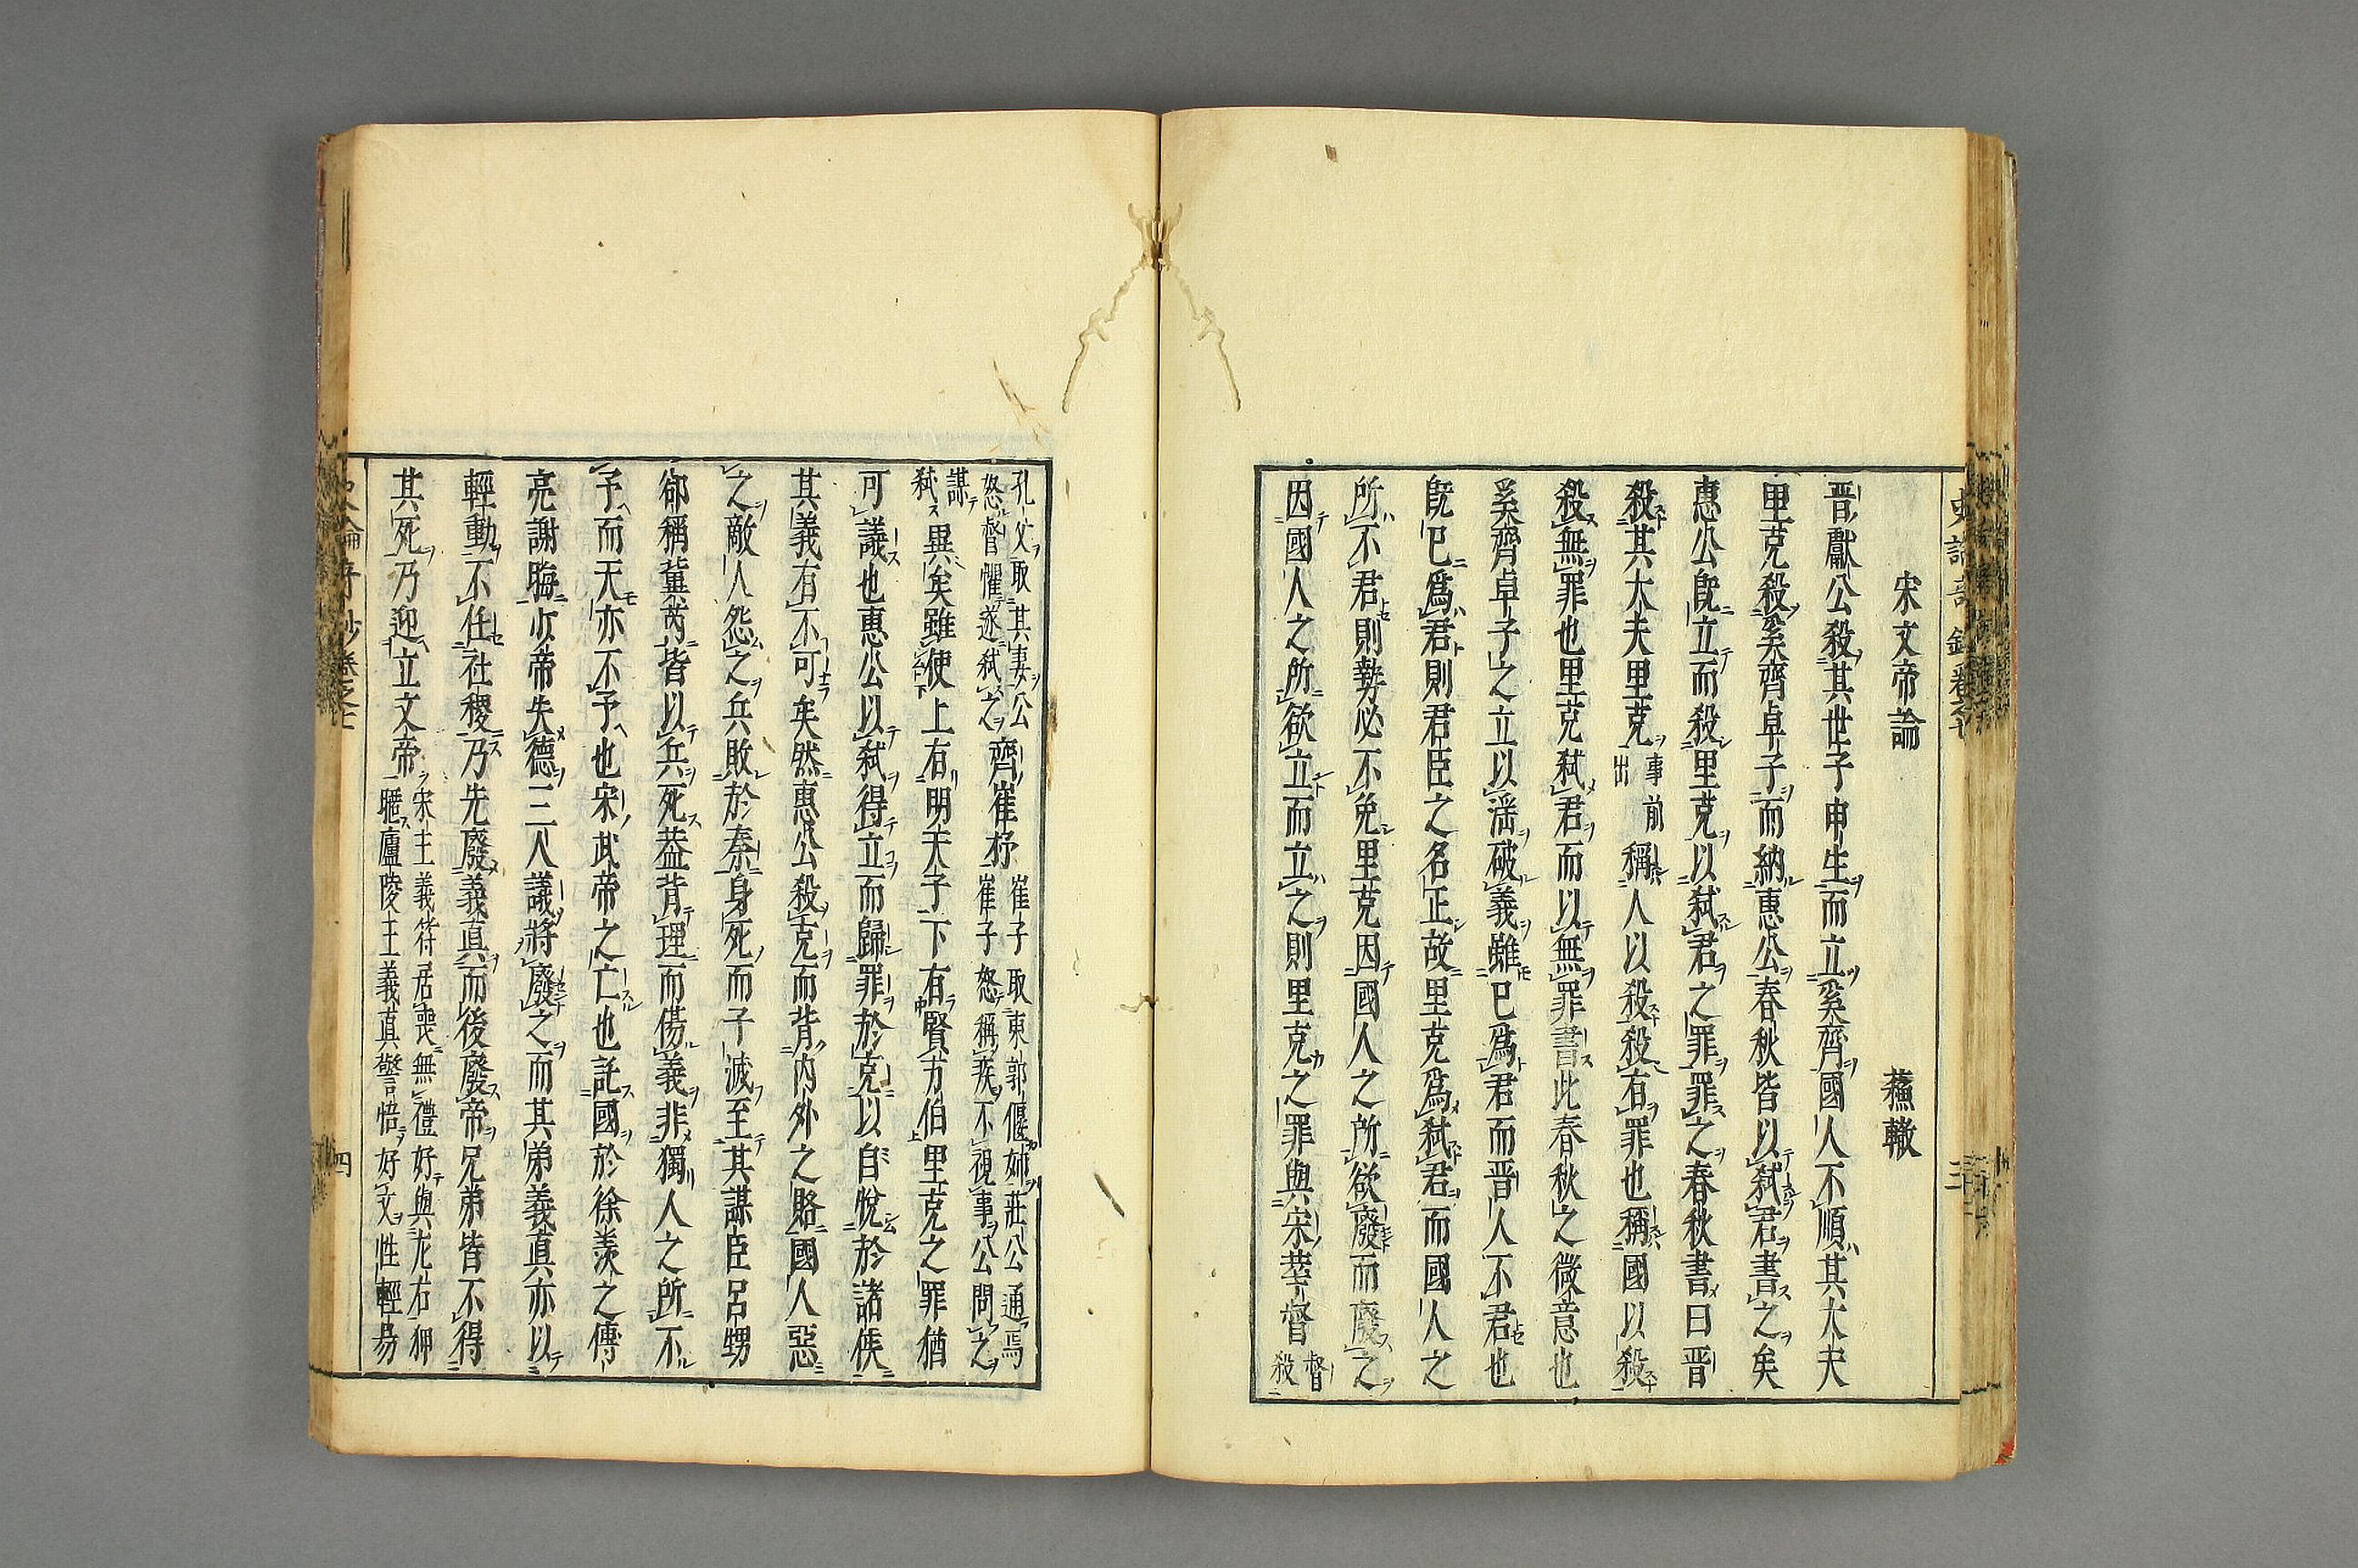 宋文帝論　蘓轍
晋獻公殺其世子申生而立奚齊國人不順其大夫
里克殺奚齊卓子而納惠公春秋皆以弑君書之矣
惠公旣立而殺里克以弑君之罪罪之春秋書曰晋
殺其大夫里克事前出稱人以殺殺有罪也稱國以殺
殺無罪也里克弑君而以無罪書此春秋之微意也
奚齊卓子之立以滛破義雖已爲君而晋人不君也
旣已爲君則君臣之名正故里克爲弑君而國人之
所不君則勢必不免里克因國人之所欲廢而廢之
因國人之所欲立而立之則里克之罪與宋華督督殺
孔父取其妻公怒督懼遂弑之齊崔杼崔子取東郭偃姊莊公通焉崔子怒稱疾不視事公問之
謀弑異矣雖使上有明天子下有賢方伯里克之罪猶
可議也惠公以弑得立而歸罪於克以自悅於諸侯
其義有不可矣然惠公殺克而背內外之賂國人惡
之敵人怨之兵敗於秦身死而子滅至其謀臣呂甥
郤稱冀芮皆以兵死葢背理而傷義非獨人之所不
予而天亦不予也宋武帝之亡也託國於徐羨之傅
亮謝晦少帝失德三人議將廢之而其弟義真亦以
輕動不任社稷乃先廢義真而後廢帝兄弟皆不得
其死乃迎立文帝宋主義符居喪無禮好與左右狎暱廬陵王義真警悟好文性輕易
史論奇鈔卷之七　三
史論奇鈔卷之七　四